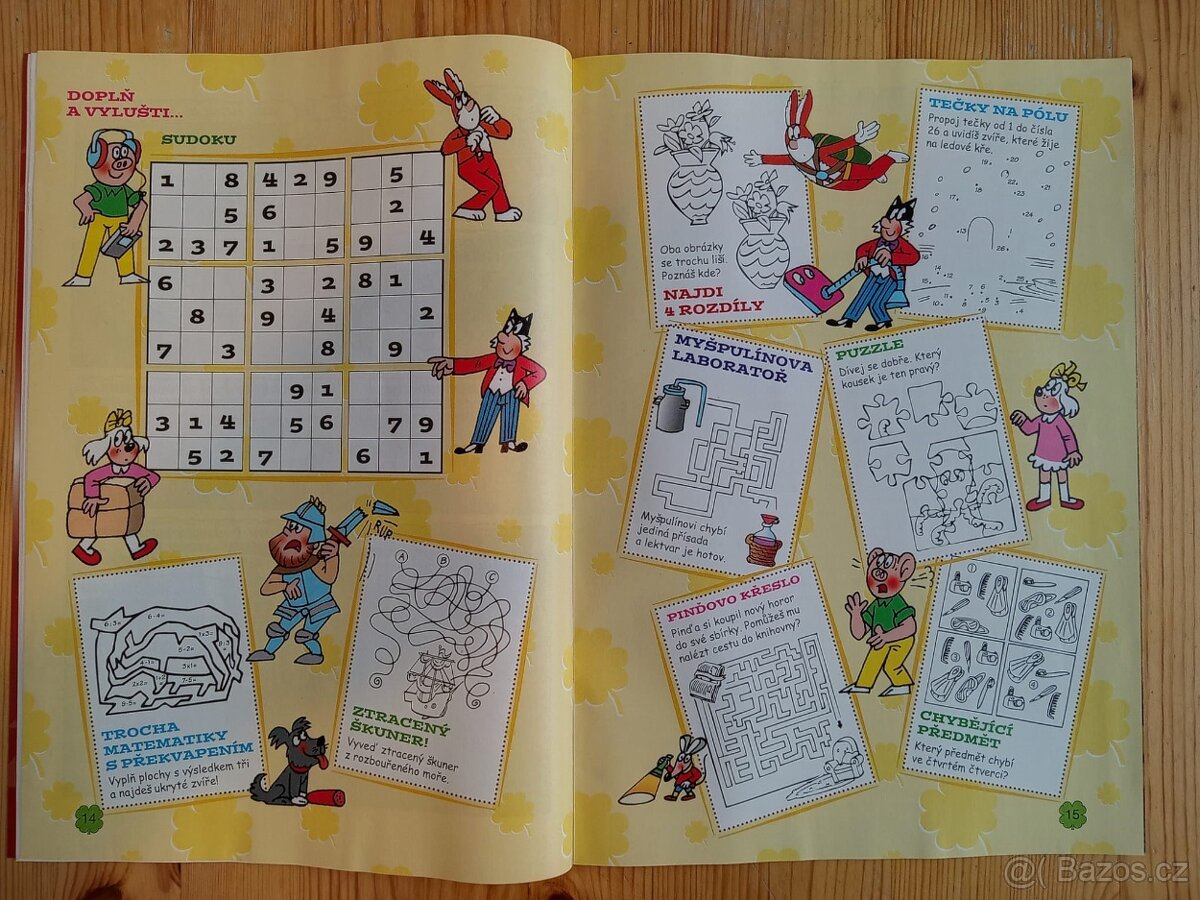 DOPLŇ
A VYLUŠTI...
SUDOKU
1 8 4 2 9 5
5 6 2
2 3 7 1 5 9 4
6 3 2 8 1
8 9 4 2
7 3 8 9
9 1
3 1 4 5 6 7 9
5 2 7 6 1
RUP
TROCHA
MATEMATIKY
S PŘEKVAPENÍM
Vyplň plochy s výsledkem tři
a najdeš ukryté zvíře!
A B C
ZTRACENÝ
ŠKUNER!
Vyveď ztracený škuner
z rozbouřeného moře.
14
Oba obrázky
se trochu liší.
Poznáš kde?
NAJDI
4 ROZDÍLY
TEČKY NA PÓLU
Propoj tečky od 1 do čísla
26 a uvidíš zvíře, které žije
na ledové kře.
MYŠPULÍNOVA
LABORATOŘ
Myšpulínovi chybí
jediná přísada
a lektvar je hotov.
PUZZLE
Dívej se dobře. Který
kousek je ten pravý?
PINĎOVO KŘESLO
Pinďa si koupil nový horor
do své sbírky. Pomůžeš mu
nalézt cestu do knihovny?
1
2
3
4
CHYBĚJÍCÍ
PŘEDMĚT
Který předmět chybí
ve čtvrtém čtverci?
15
@( Bazos.cz